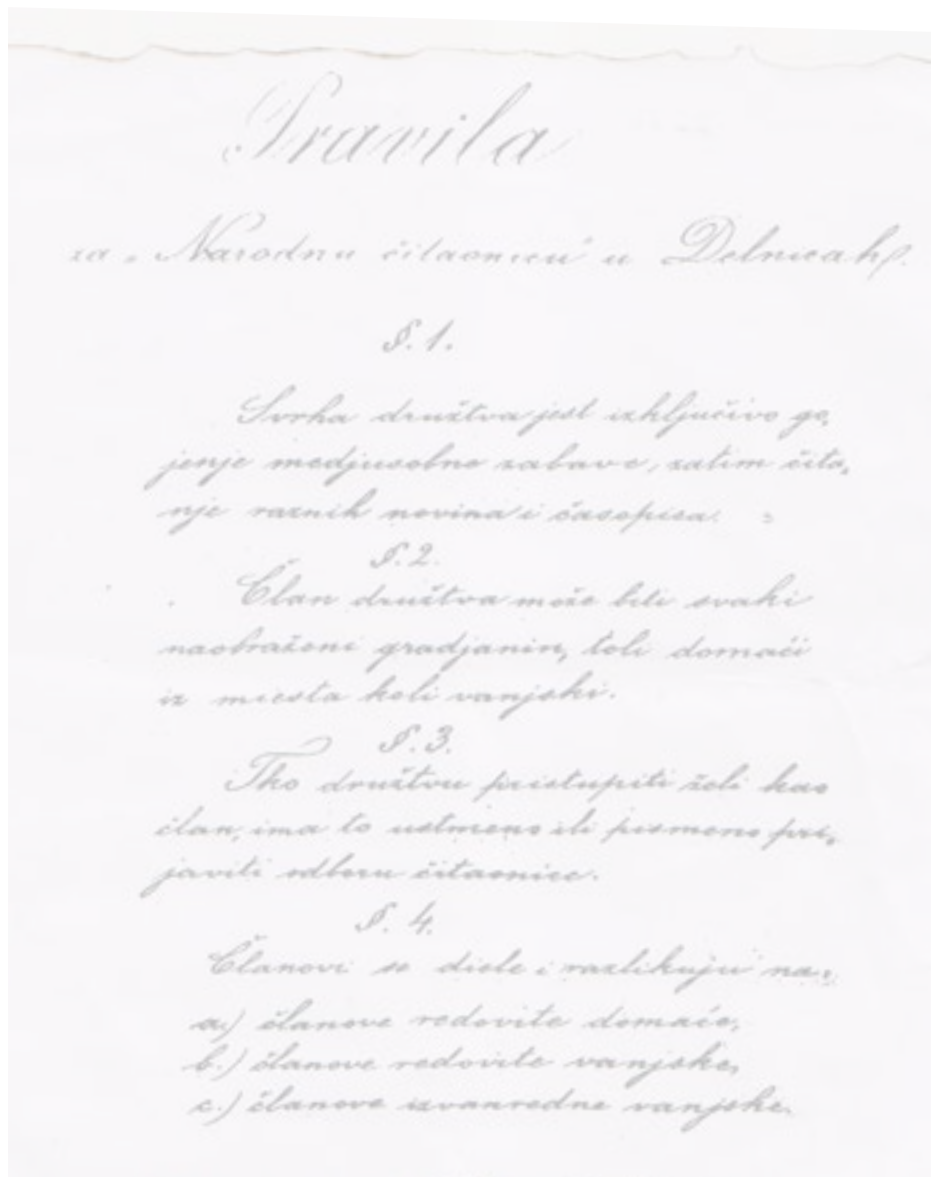 Pravila
za „Narodnu čitaonicu" u Delnicah.
§. 1.
Svrha družtva jest izključivo go-
jenje medjusobne zabave, zatim čita-
nje raznih novina i časopisa.
§. 2.
Član družtva može biti svaki
naobraženi gradjanin, toli domaći
iz miesta koli vanjski.
§. 3.
Tko družtvu pristupiti želi kao
član, ima to ustmeno ili pismeno pri-
javiti odboru čitaonice.
§. 4.
Članovi se diele i razlikuju na:
a.) članove redovite domaće,
b.) članove redovite vanjske,
c.) članove izvanredne vanjske.